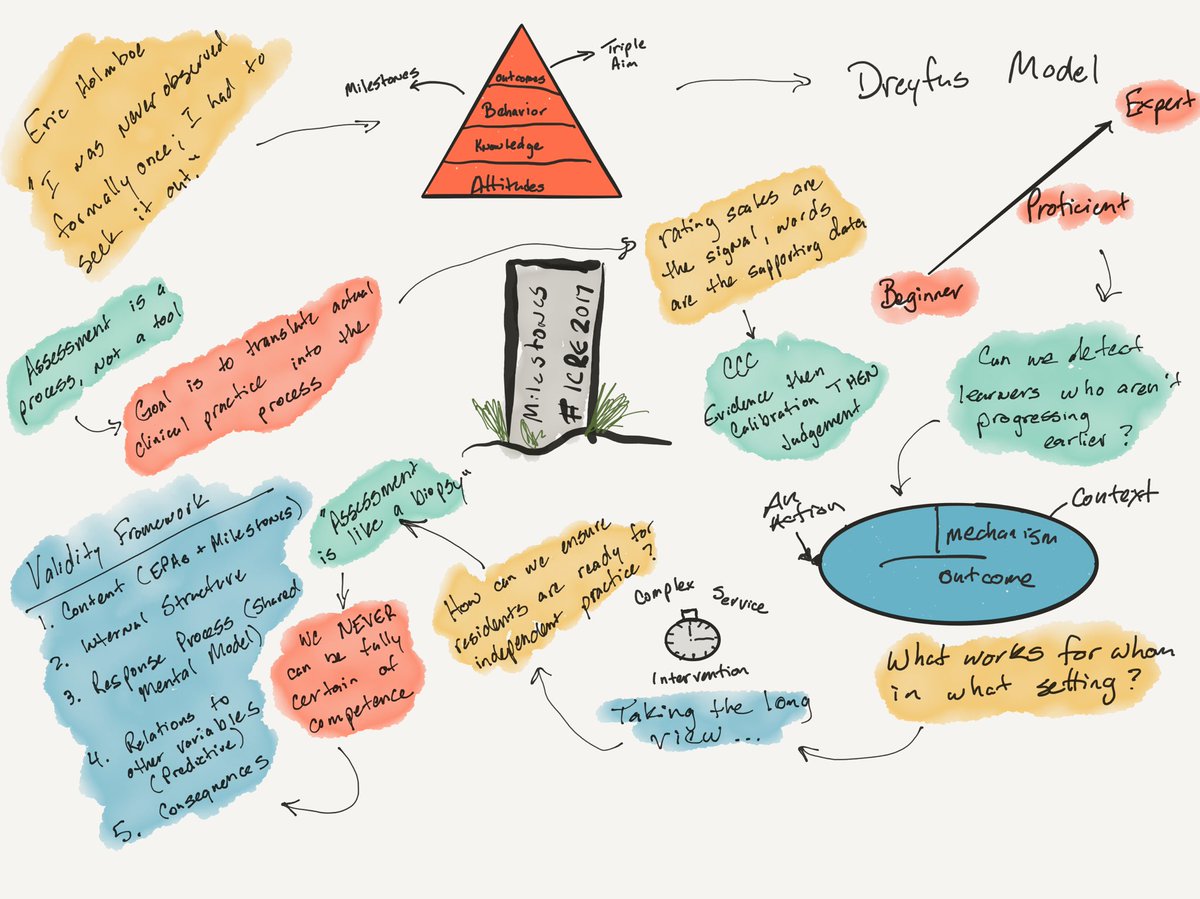 Eric Holmboe
"I was never observed
formally once; I had to
seek it out."
Milestones
Triple
Aim
outcomes
Behavior
Knowledge
Attitudes
Dreyfus Model
Expert
Proficient
Beginner
Assessment is a
process, not a tool
Goal is to translate actual
clinical practice into the
process
rating scales are
the signal, words
are the supporting data
Milestones
#ICRE2017
CCC
Evidence then
Calibration THEN
Judgement
Can we detect
learners who aren't
progressing
earlier?
An
Action
Context
mechanism
outcome
What works for whom
in what setting?
Complex Service
Intervention
Taking the long
view...
How can we ensure
residents are ready for
independent practice?
"Assessment
is like a biopsy"
We NEVER
can be fully
certain of
competence
Validity Framework
1. Content (EPAs + Milestones)
2. Internal Structure
3. Response Process (Shared
mental Model)
4. Relations to
other variables
(Predictive)
5. Consequences